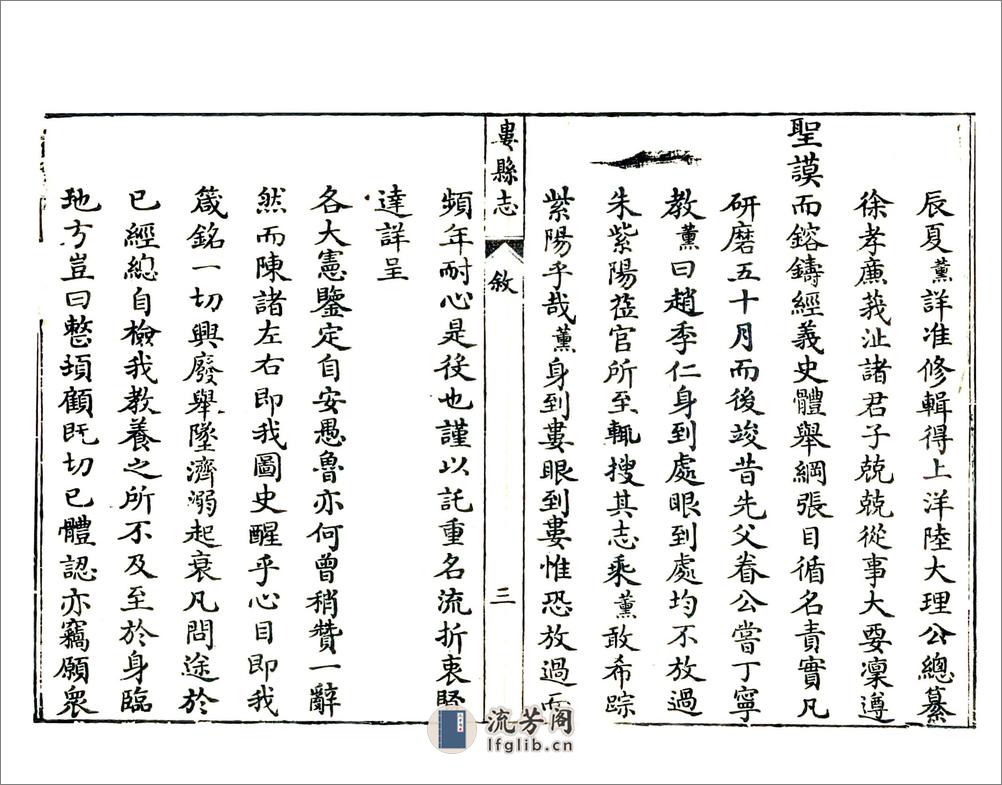 辰夏薰詳准修輯得上洋陸大理公總纂
徐孝廉莪沚諸君子兢兢從事大要凜遵
聖謨而鎔鑄經義史體舉綱張目循名責實凡
研磨五十月而後竣昔先父眷公嘗丁寧
教薰曰趙季仁身到處眼到處均不放過
朱紫陽莅官所至輒搜其志乘薰敢希踪
紫陽乎哉薰身到婁眼到婁惟恐放過而
婁縣志
敘
三
頻年耐心是役也謹以託重名流折衷賢
達詳呈
各大憲鑒定自安愚魯亦何曾稍贊一辭
然而陳諸左右即我圖史醒乎心目即我
箴銘一切興廢舉墜濟溺起衰凡問途於
已經總自檢我教養之所不及至於身臨
地方豈曰整頓顧旣切已體認亦竊願衆
流芳阁
lfglib.cn